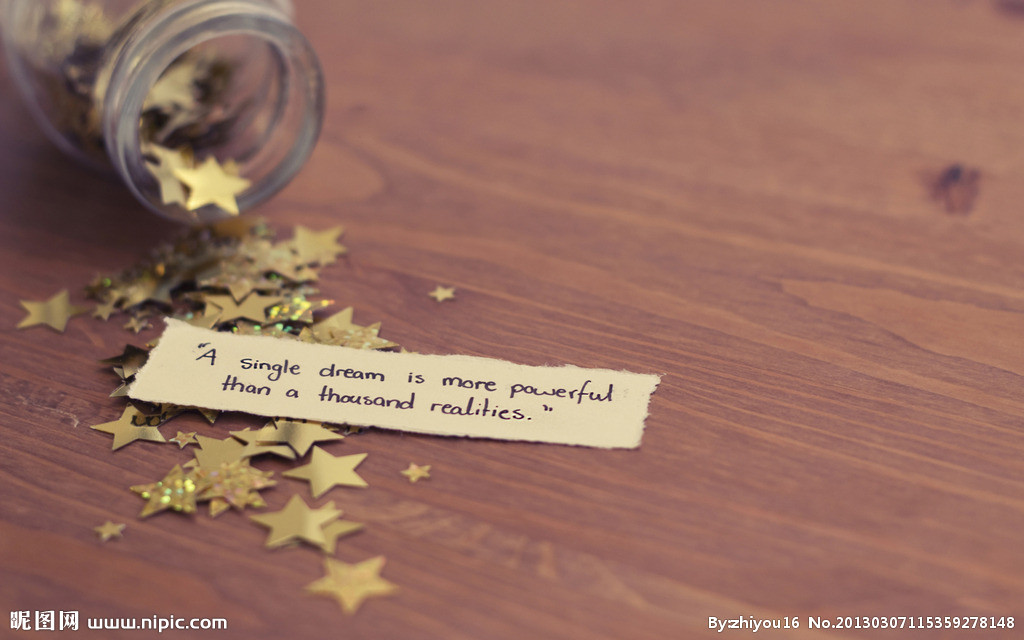 “A single dream is more powerful
than a thousand realities.”
昵图网 www.nipic.com
By:zhiyou16 No.20130307115359278148